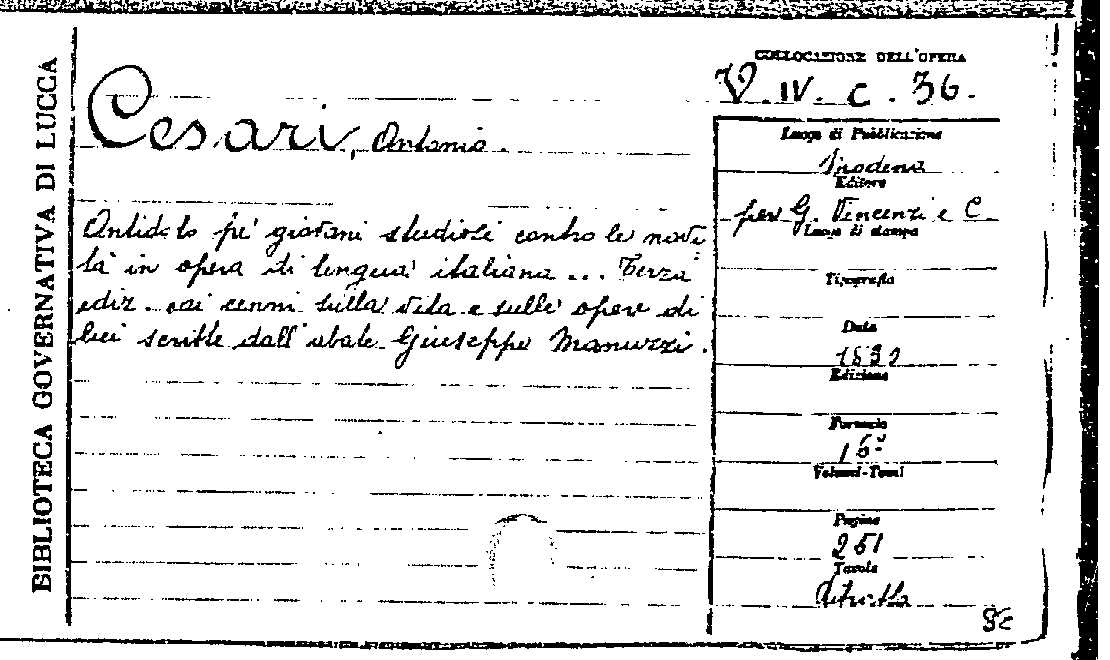 BIBLIOTECA GOVERNATIVA DI LUCCA
COLLOCAZIONE DELL'OPERA
V. IV. C. 36.
Cesari, Antonio.
Antidoto pe' giovani studiosi contro le novi
tà in opera di lingua italiana ... Terza
ediz. coi cenni sulla vita e sulle opere di
lui scritte dall'abate Giuseppe Manuzzi.
Luogo di Pubblicazione
Modena
Editore
per G. Vincenzi e C.
Luogo di stampa
Tipografia
Data
Edizione
Formato
16°
Volumi-Tomi
Pagine
251
Tavole
Ritratto